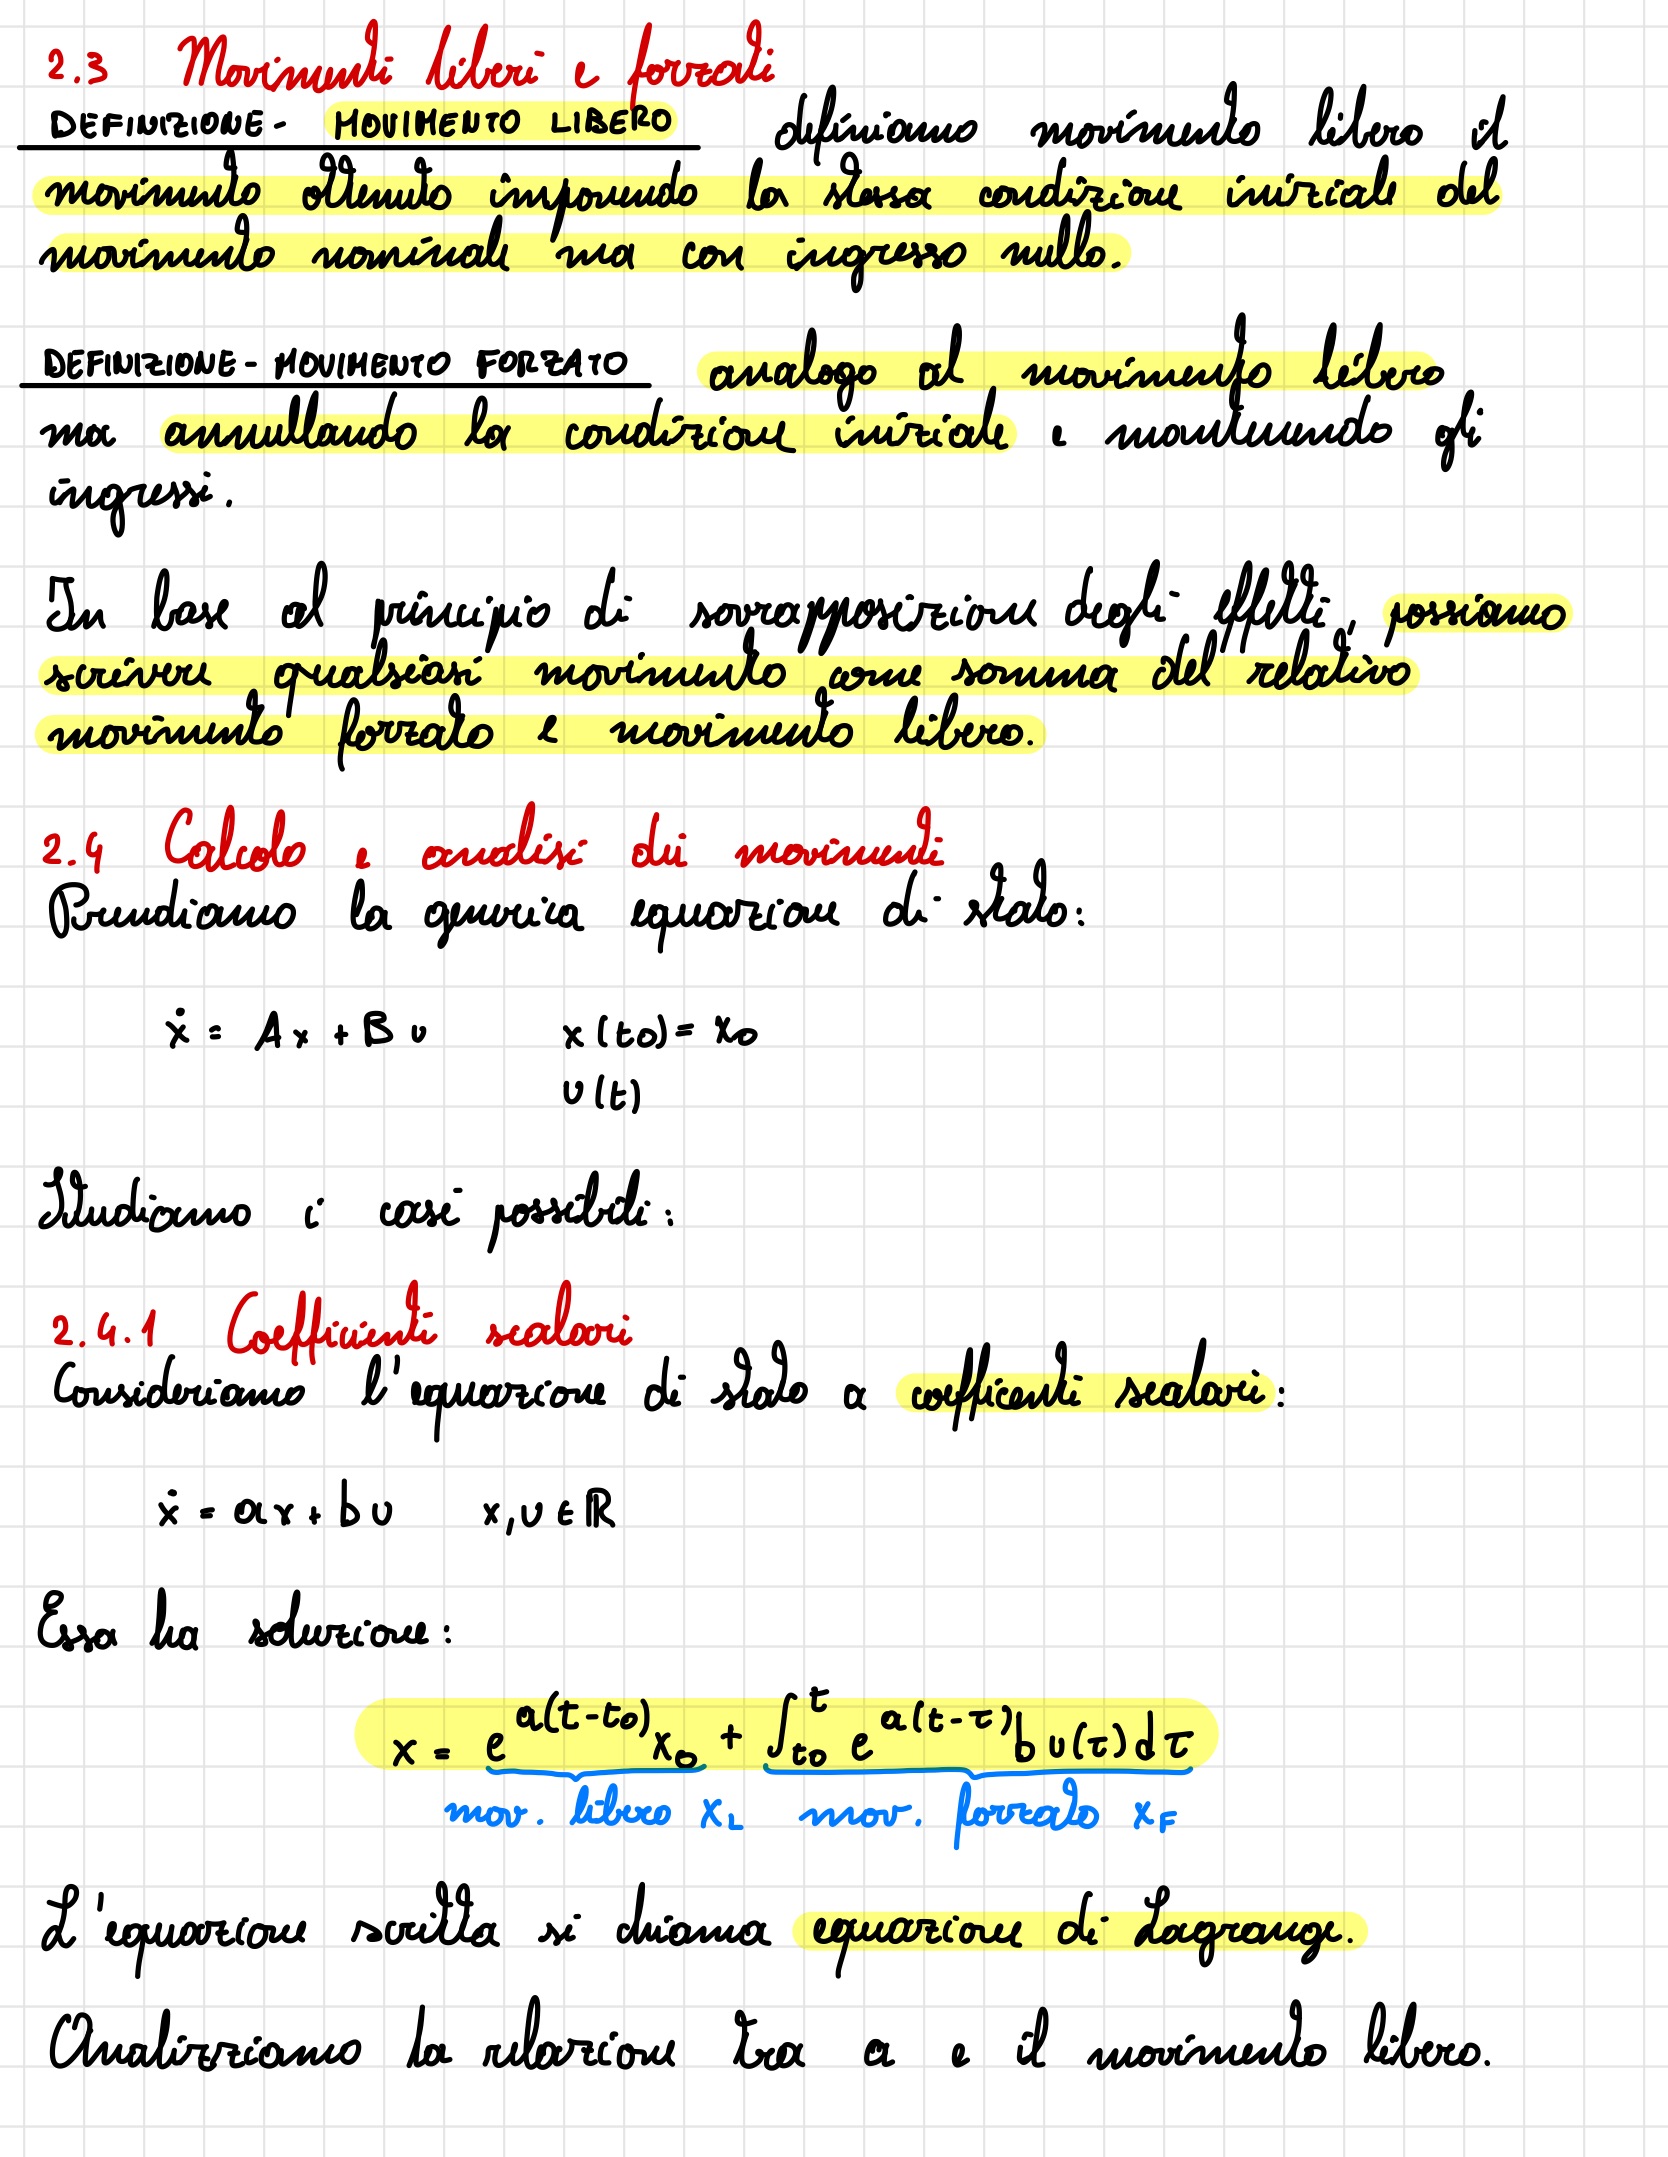 2.3 Movimenti liberi e forzati
DEFINIZIONE - MOVIMENTO LIBERO definiamo movimento libero il
movimento ottenuto imponendo la stessa condizione iniziale del
movimento nominale ma con ingresso nullo.
DEFINIZIONE - MOVIMENTO FORZATO analogo al movimento libero
ma annullando la condizione iniziale e mantenendo gli
ingressi.
In base al principio di sovrapposizione degli effetti, possiamo
scrivere qualsiasi movimento come somma del relativo
movimento forzato e movimento libero.
2.4 Calcolo e analisi dei movimenti
Prendiamo la generica equazione di stato:
ẋ = Ax + Bu x(t0) = x0
u(t)
Studiamo i casi possibili:
2.4.1 Coefficienti scalari
Consideriamo l'equazione di stato a cofficenti scalari:
ẋ = ax + bu x,u ∈ ℝ
Essa ha soluzione:
x = e^{a(t-t0)} x0 + ∫_{t0}^{t} e^{a(t-τ)} b u(τ) dτ
mov. libero x_L mov. forzato x_F
L'equazione scritta si chiama equazione di Lagrange.
Analizziamo la relazione tra a e il movimento libero.